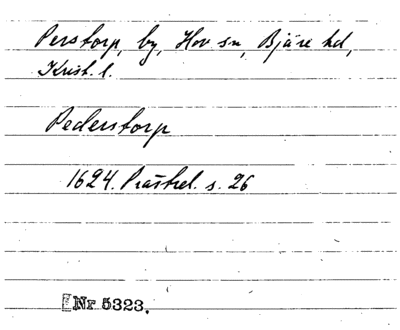 Perstorp, by, Hov sn, Bjäre hd,
Krist. l.
Pederstorp
1624. Prästrel. s. 26
Nr 5323.